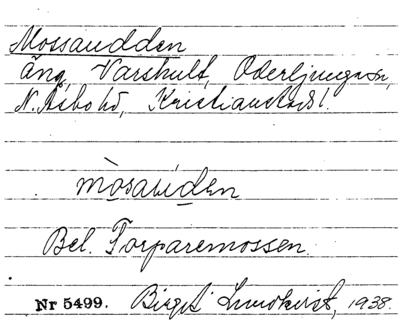 Mossaudden
äng, Varshult, Oderljunga sn,
N. Åsbo hd, Kristianstads l.
mòsaúden
Bel. Torparemossen.
Nr 5499. Birgit Lundkvist, 1938.